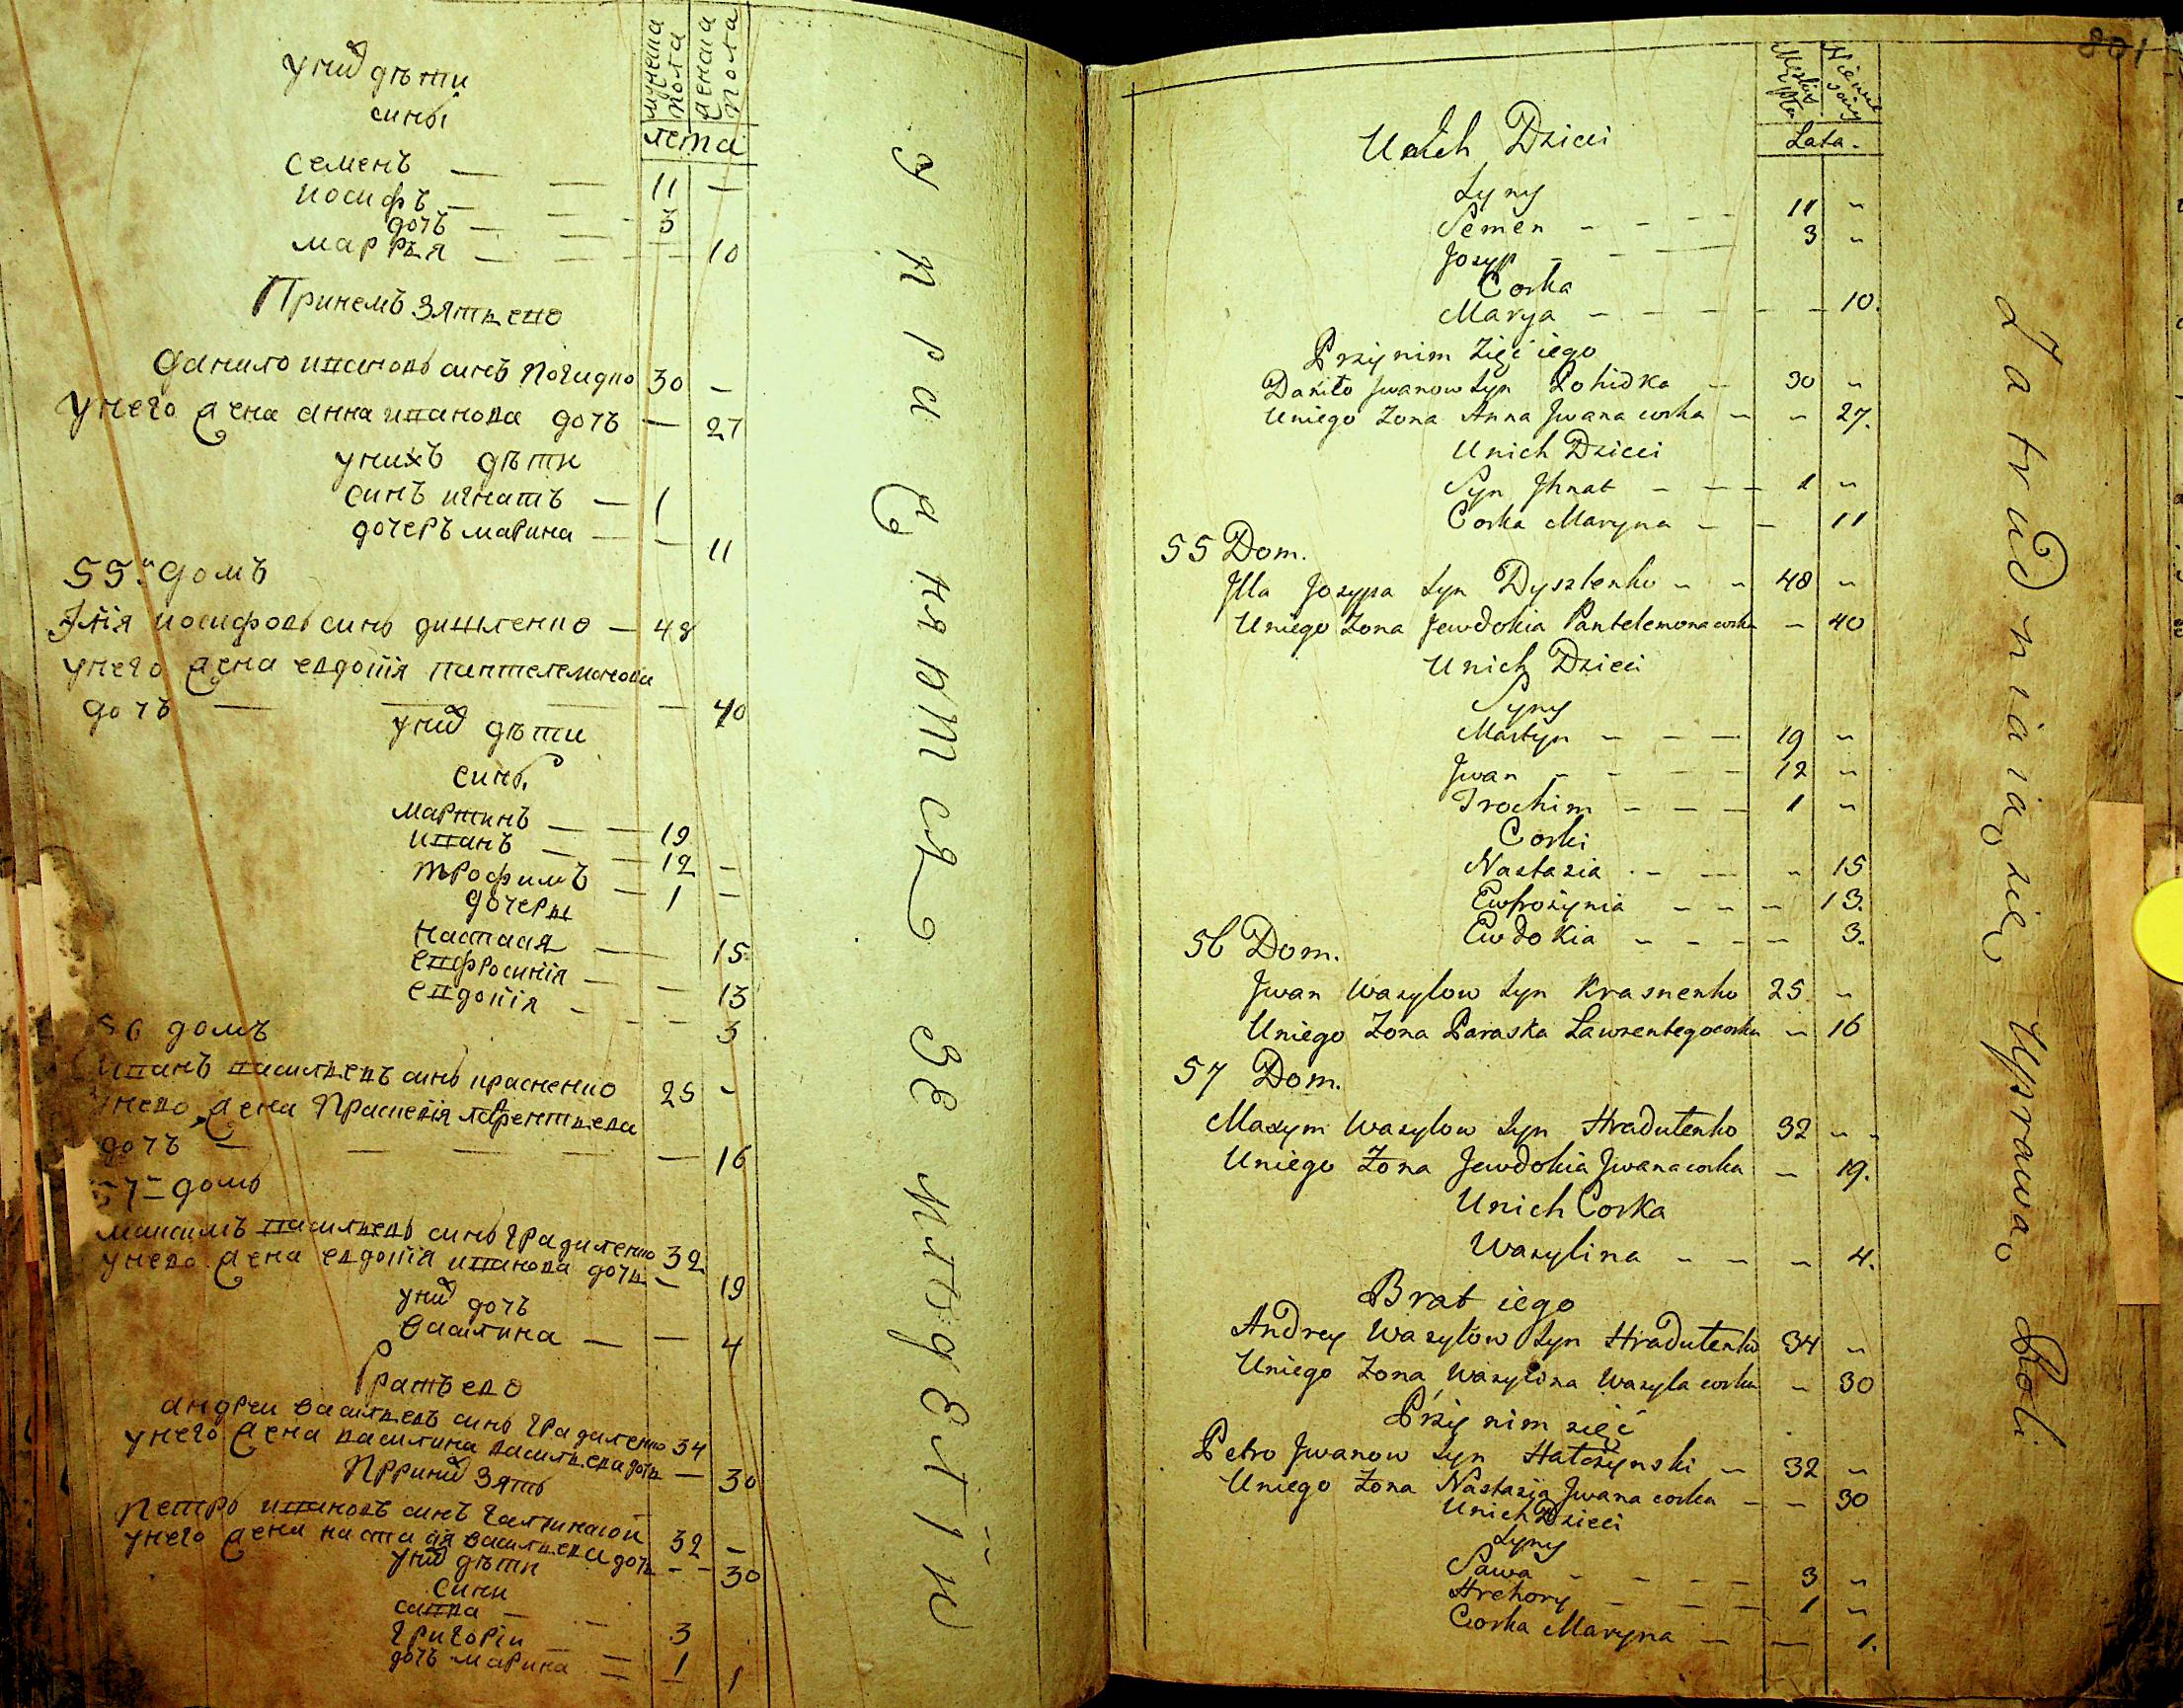 мужеска пола
женска пола
лета
у них дѣти
сины
Семенъ — — 11 —
Иосифъ — — 3
дочъ
Маръя — — — 10
При немъ зять его
Данило Ивановъ синъ Погидко 30 —
у него жена Анна Иванова дочъ — 27
у нихъ дѣти
синъ Игнатъ — 1
дочеръ Марина — — 11
55й домъ
Илія Иосифовъ синъ Дишленко — 48
у него жена Евдокія Пантелемонова
дочъ — — — — 40
у них дѣти
сины
Мартинъ — — 19
Иванъ — — 12 —
Трофимъ — 1 —
дочеры
Настася — 15
Евфросинія — — 13
Евдокія - - - 3
56 домъ
Иванъ Васильевъ синъ Красненко 25 -
у него жена Праскевія Лаврентьева
дочъ — — — — — 16
57 домъ
Максимъ Васильевъ синъ Градиленко 32
у него жена Евдокія Иванова дочь — 19
у них дочъ
Василина — — 4
Братъ его
Андрей Васильевъ синъ Градиленко 34
у него жена Василина Васильева дочь — 30
При них зять
Петро Ивановъ синъ Галчинской 32 —
у него жена Настасія Васильева дочь - - 30
у них дѣти
сини
Савва — — 3
Григорій — 1
дочъ Марина — — 1
упражняются зе мльоделіи
801
Męzka płeć
Lata.
Unich Dzieci
Syny
Semen - - - - 11 "
Jozyp - - — 3 "
Corka
Marya - - - - - 10.
Przy nim zięć iego
Daniło Jwanow Syn Pohidka - 30 "
Uniego Zona Anna Jwana corka - " 27.
Unich Dzieci
Syn Jhnat - - - 1 "
Corka Maryna - - 11
55 Dom.
Jlla Jozypa Syn Dyszlenko - " 48 "
Uniego Zona Jewdokia Pantelemona corka - 40
Unich Dzieci
Syny
Martyn - - — 19 "
Jwan - - - - 12 "
Trochim - - — 1 "
Corki
Nastazia - - — " 15
Ewfrozynia - - - 13.
Ewdokia - - - - 3.
56 Dom.
Jwan Wasylow Syn Krasnenko 25. "
Uniego Zona Paraska Lawrentego corka - 16
57 Dom.
Maxym Wasylow Syn Hradulenko 32 "
Uniego Zona Jewdokia Jwana corka - 19.
Unich Corka
Wasylina - - - 4.
Brat iego
Andrey Wasylow Syn Hradulenko 34 "
Uniego Zona Wasylina Wasyla corka - 30
Przy nim zięć
Petro Jwanow Syn Hatczynski - 32 "
Uniego Zona Nastazia Jwana corka - - 30
Unich Dzieci
Syny
Sawa - - - - 3 "
Hrehory - - — 1 "
Corka Maryna - — 1.
Zatrudniaią się Uprawą Roli